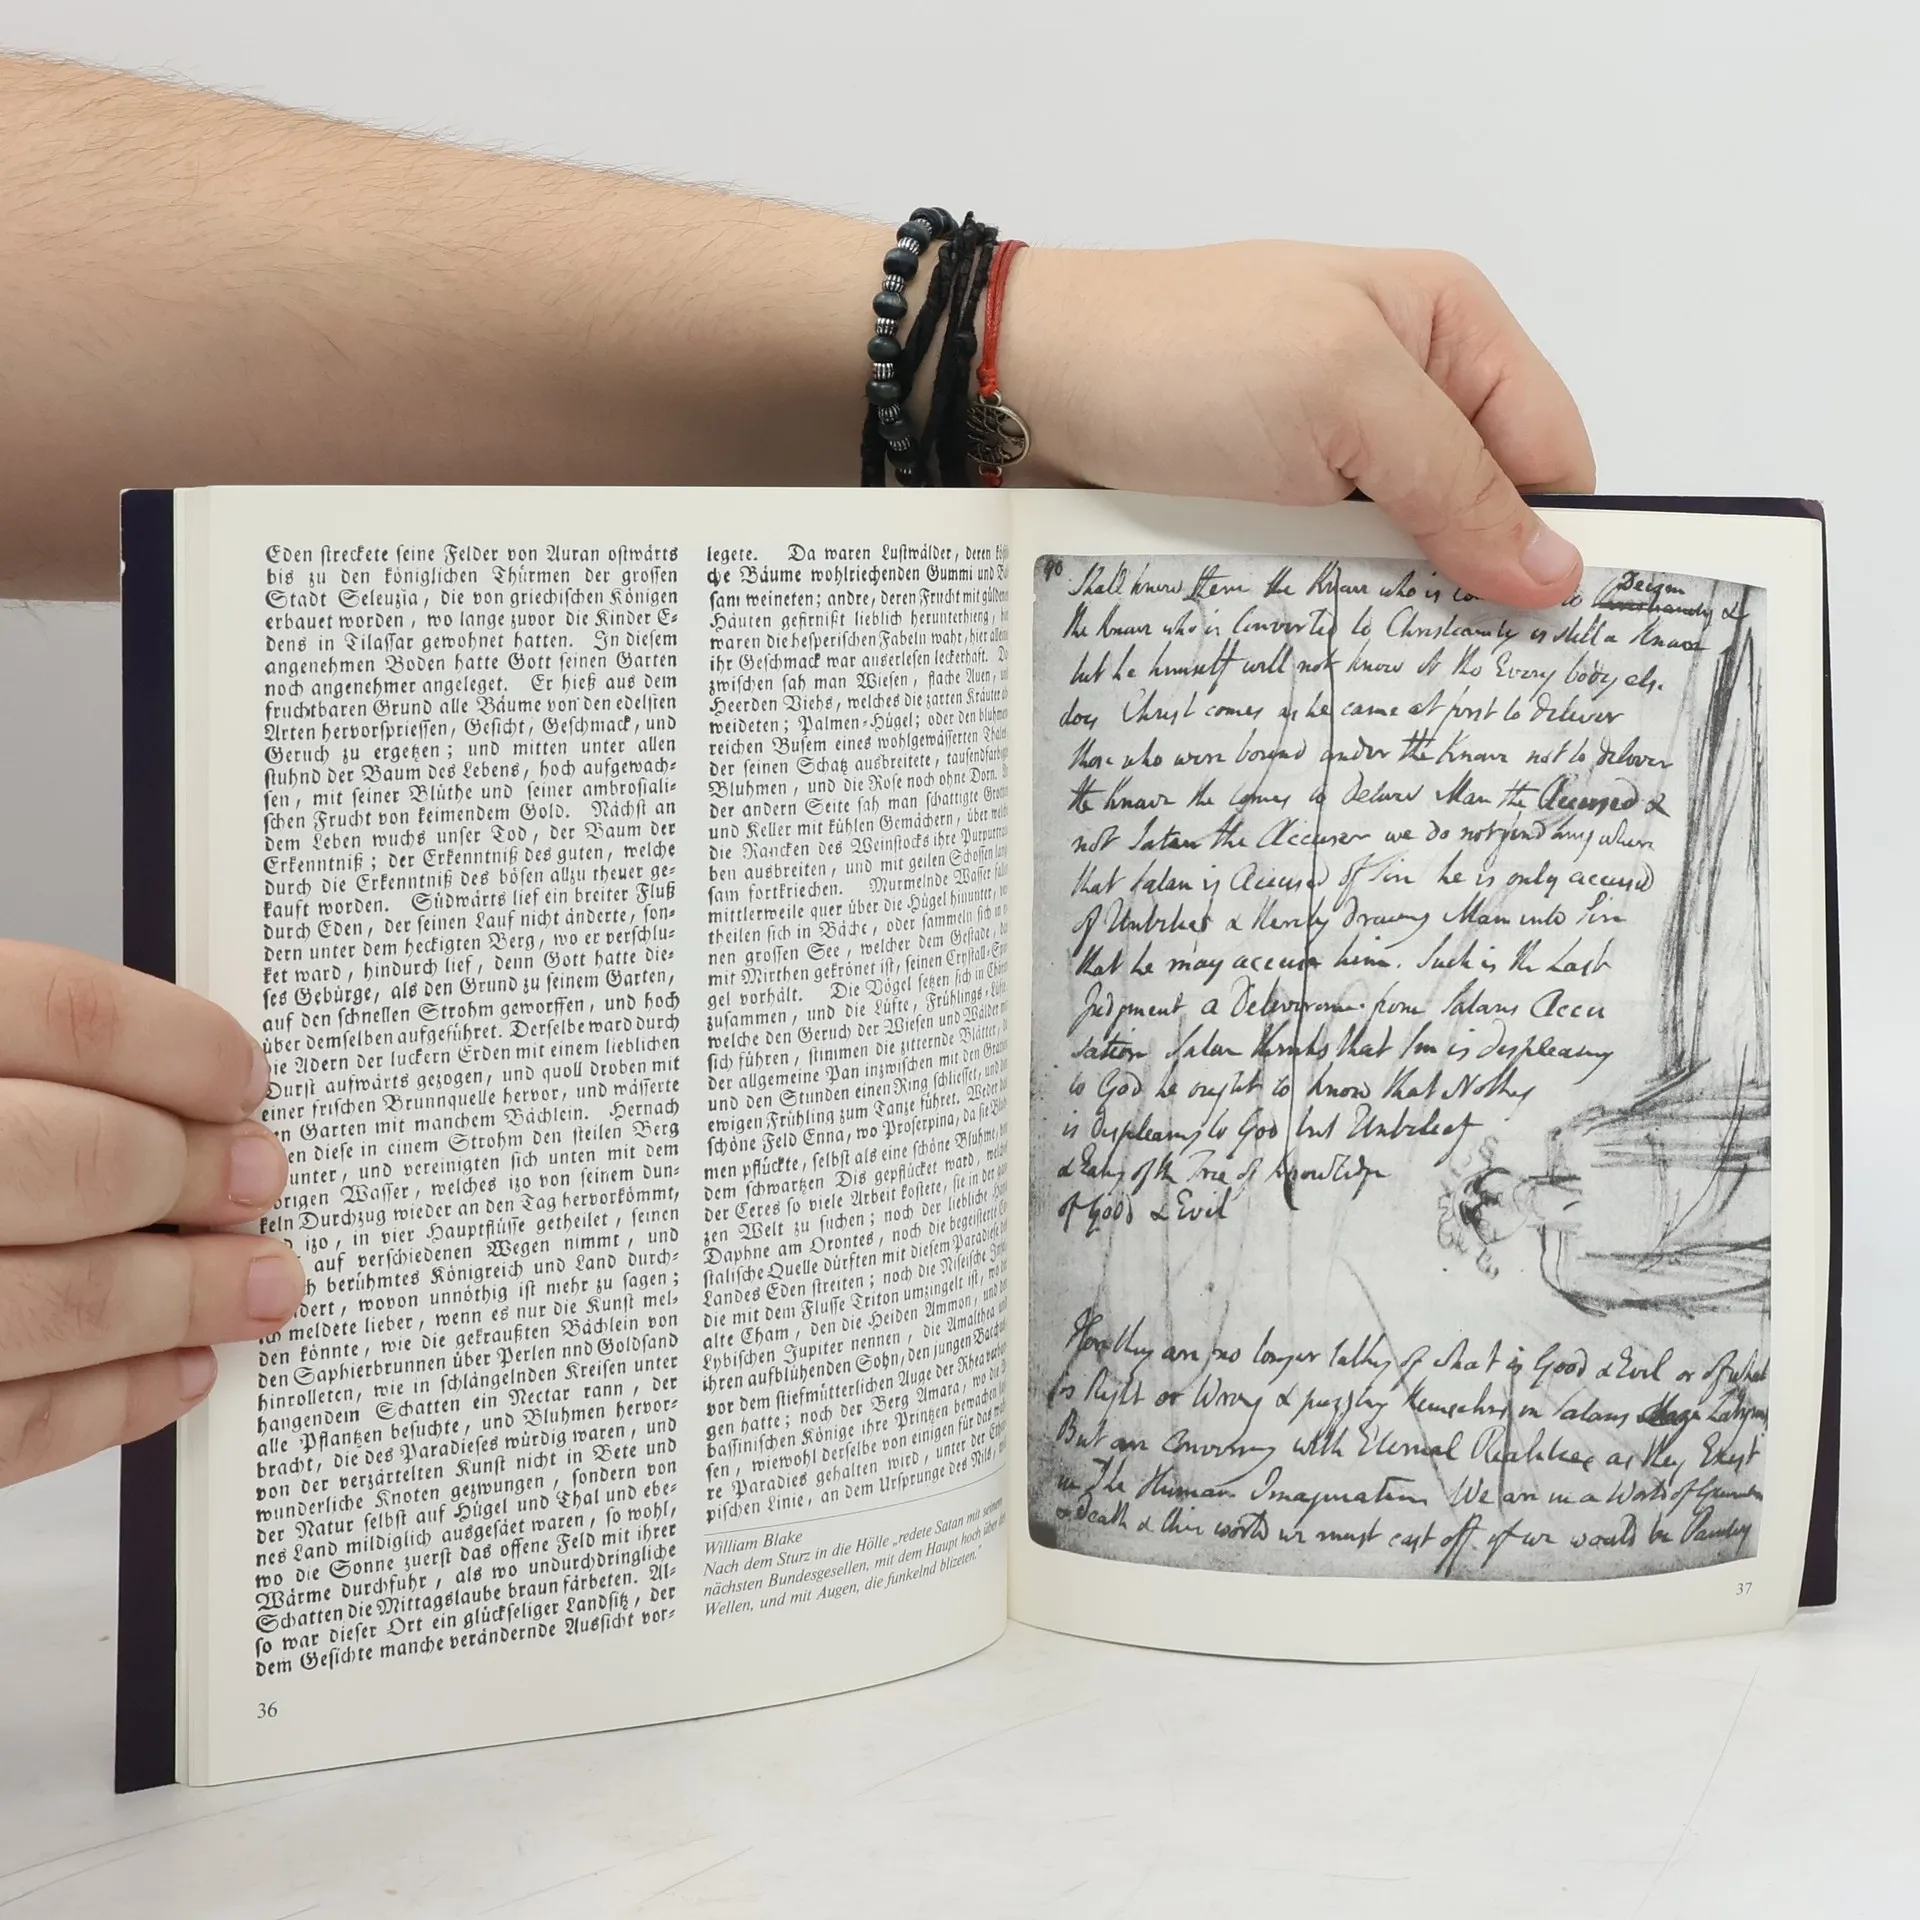 Eden ſtreckete ſeine Felder von Auran oſtwärts
bis zu den königlichen Thürmen der groſſen
Stadt Seleuzia, die von griechiſchen Königen
erbauet worden, wo lange zuvor die Kinder E-
dens in Tilaſſar gewohnet hatten. In dieſem
angenehmen Boden hatte Gott ſeinen Garten
noch angenehmer angeleget. Er hieß aus dem
fruchtbaren Grund alle Bäume von den edelſten
Arten hervorſprieſſen, Geſicht, Geſchmack, und
Geruch zu ergetzen; und mitten unter allen
ſtuhnd der Baum des Lebens, hoch aufgewach-
ſen, mit ſeiner Blüthe und ſeiner ambroſiali-
ſchen Frucht von keimendem Gold. Nächſt an
dem Leben wuchs unſer Tod, der Baum der
Erkenntniß; der Erkenntniß des guten, welche
durch die Erkenntniß des böſen allzu theuer ge-
kauft worden. Südwärts lief ein breiter Fluß
durch Eden, der ſeinen Lauf nicht änderte, ſon-
dern unter dem heckigten Berg, wo er verſchlu-
ket ward, hindurch lief, denn Gott hatte die-
ſes Gebürge, als den Grund zu ſeinem Garten,
auf den ſchnellen Strohm geworffen, und hoch
über demſelben aufgeführet. Derſelbe ward durch
die Adern der luckern Erden mit einem lieblichen
Durſt aufwärts gezogen, und quoll droben mit
einer friſchen Brunnquelle hervor, und wäſſerte
Garten mit manchem Bächlein. Hernach
dieſe in einem Strohm den ſteilen Berg
unter, und vereinigten ſich unten mit dem
Waſſer, welches izo von ſeinem dun-
keln Durchzug wieder an den Tag hervorkömmt,
izo, in vier Hauptflüſſe getheilet, ſeinen
auf verſchiedenen Wegen nimmt, und
berühmtes Königreich und Land durch-
wovon unnöthig iſt mehr zu ſagen;
meldete lieber, wenn es nur die Kunſt mel-
den könnte, wie die gekraußten Bächlein von
den Saphierbrunnen über Perlen nnd Goldſand
hinrolleten, wie in ſchlängelnden Kreiſen unter
hangendem Schatten ein Nectar rann, der
alle Pflantzen beſuchte, und Bluhmen hervor-
bracht, die des Paradieſes würdig waren, und
von der verzärtelten Kunſt nicht in Bete und
wunderliche Knoten gezwungen, ſondern von
der Natur ſelbſt auf Hügel und Thal und ebe-
nes Land mildiglich ausgeſäet waren, ſo wohl,
wo die Sonne zuerſt das offene Feld mit ihrer
Wärme durchfuhr, als wo undurchdringliche
Schatten die Mittagslaube braun färbeten. Al-
ſo war dieſer Ort ein glückſeliger Landſitz, der
dem Geſichte manche verändernde Ausſicht vor-
36
legete. Da waren Luſtwälder, deren
che Bäume wohlriechenden Gummi und
ſam weineten; andre, deren Frucht mit
Häuten gefirnißt lieblich herunterhieng,
waren die heſperiſchen Fabeln wahr, hier
ihr Geſchmack war auserleſen leckerhaft.
zwiſchen ſah man Wieſen, flache Auen,
Heerden Viehs, welches die zarten Kräuter
weideten; Palmen-Hügel; oder den
reichen Buſem eines wohlgewäſſerten
der ſeinen Schatz ausbreitete,
Bluhmen, und die Roſe noch ohne Dorn.
der andern Seite ſah man ſchattigte
und Keller mit kühlen Gemächern, über
die Rancken des Weinſtocks ihre
ben ausbreiten, und mit geilen Schoſſen
ſam fortkriechen. Murmelnde Waſſer
mittlerweile quer über die Hügel hinunter,
theilen ſich in Bäche, oder ſammeln ſich in
nen groſſen See, welcher dem Geſtade,
mit Mirthen gekrönet iſt, ſeinen
gel vorhält. Die Vögel ſetzen ſich in
zuſammen, und die Lüfte,
welche den Geruch der Wieſen und Wälder
ſich führen, ſtimmen die zitternde Blätter,
der allgemeine Pan inzwiſchen mit den
und den Stunden einen Ring ſchlieſſet, und
ewigen Frühling zum Tanze führet. Weder
ſchöne Feld Enna, wo Proſerpina, da ſie
men pflückte, ſelbſt als eine ſchöne Bluhme,
dem ſchwartzen Dis gepflücket ward,
der Ceres ſo viele Arbeit koſtete, ſie in der
zen Welt zu ſuchen; noch der liebliche
Daphne am Orontes, noch die begeiſterte
ſtaliſche Quelle dürften mit dieſem Paradieſe
Landes Eden ſtreiten; noch die Niſeiſche
die mit dem Fluſſe Triton umzingelt iſt, wo
alte Cham, den die Heiden Ammon, und
Lybiſchen Jupiter nennen, die Amalthea und
ihren aufblühenden Sohn, den jungen
vor dem ſtiefmütterlichen Auge der Rhea
gen hatte; noch der Berg Amara, wo die
baſſiniſchen Könige ihre Printzen bewachen
ſen, wiewohl derſelbe von einigen für das
re Paradies gehalten wird, unter der
piſchen Linie, an dem Urſprunge des Nils,
William Blake
Nach dem Sturz in die Hölle „redete Satan mit seinem
nächsten Bundesgesellen, mit dem Haupt hoch über
Wellen, und mit Augen, die funkelnd blizeten.“
90
Shall know them the Knave who is to Deism
Christianity &
the Knave who is Converted to Christianity is still a Knave
but he himself will not know it tho Every body els.
does Christ comes as he came at first to deliver
those who were bound under the Knave not to deliver
the Knave He Comes to Deliver Man the Accused &
not Satan the Accuser we do not find any where
that Satan is Accused of Sin he is only accused
of Unbelief & thereby drawing Man into Sin
that he may accuse him. Such is the Last
Judgment a Deliverance from Satans Accu
sation Satan thinks that Sin is displeasing
to God he ought to know that Nothing
is displeasing to God but Unbelief
& Eating of the Tree of Knowledge
of Good & Evil
they are no longer talking of what is Good & Evil or of what
is Right or Wrong & puzzling themselves in Satans
But are Conversing with Eternal Realities as they Exist
in The Human Imagination We are in a World of Generation
& death & this world we must cast off if we would be
37